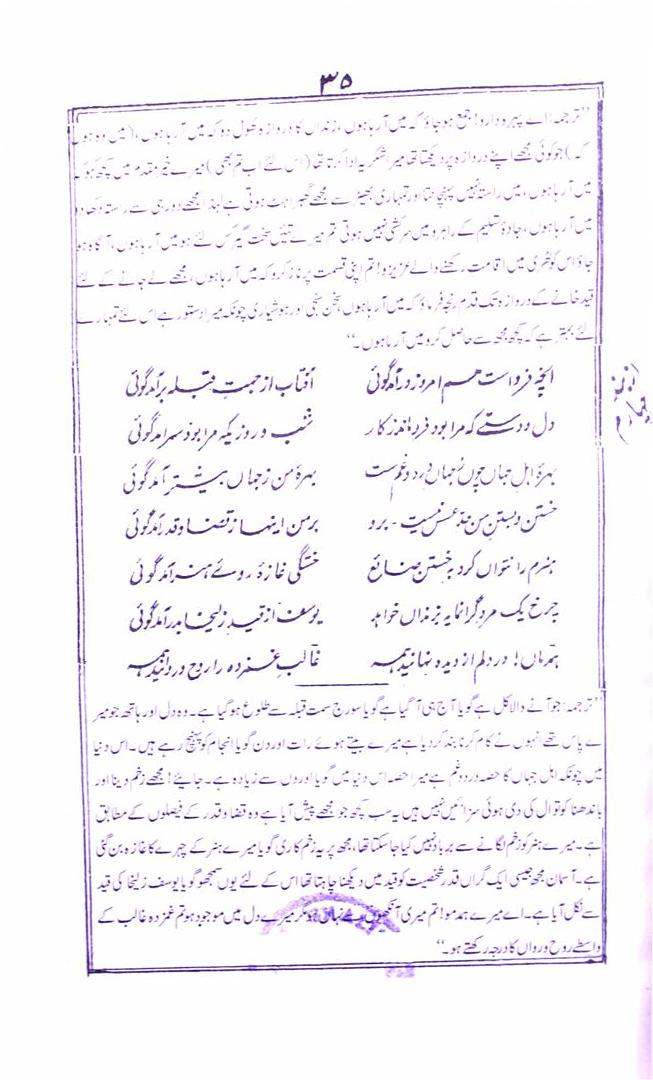 ۳۵
"ترجمہ: اے پہرہ دارو! جمع ہو جاؤ کہ میں آ رہا ہوں، زنداں کا دروازہ کھول دو کہ میں آ رہا ہوں، (میں وہ ہوں
کہ) جو کوئی مجھے اپنے دروازہ پر دیکھتا تھا میرا شکریہ ادا کرتا تھا (اس لئے اب تم بھی) میرے خیر مقدم میں کچھ ہو کہ
میں آ رہا ہوں، میں راستہ نہیں پہچانتا اور تمہاری بھیڑ سے مجھے گھبراہٹ ہوتی ہے لہٰذا مجھے دور ہی سے راستہ دکھا دو
میں آ رہا ہوں، جادۂ تسلیم کے راہرو میں سرکشی نہیں ہوتی تم میرے تئیں سخت گیر کس لئے ہو میں آ رہا ہوں، آگاہ ہو
جاؤ اس کوٹھری میں اقامت رکھنے والے عزیزو! تم اپنی قسمت پر ناز کرو کہ میں آ رہا ہوں، مجھے لے جانے کے لئے
قید خانے کے دروازہ تک قدم رنجہ فرماؤ کہ میں آ رہا ہوں سخن سنجی اور ہوشیاری چونکہ میرا دستور ہے اس لئے تمہارے
لئے بہتر ہے کہ کچھ مجھ سے حاصل کرو میں آ رہا ہوں۔"
انچہ فرد است ہم امروز در آمد گوئی آفتاب از جہت قبلہ بر آمد گوئی
دل و دستے کہ مرا بود فرو ماند ز کار شب و روزیکہ مرا بود سر آمد گوئی
بہرۂ اہل جہاں چوں ز جہاں درد و غم ست بہرۂ من ز جہاں بیشتر آمد گوئی
خستن و بستن من حد عسس نیست۔ برو بر من اینہا ز قضا و قدر آمد گوئی
ہنرم را نتواں کرد بہ خستن ضائع خستگی غازۂ روئے ہنر آمد گوئی
چرخ یک مرد گرانمایہ بزنداں خواہد یوسف از قید زلیخا بدر آمد گوئی
ہمرماں! در دلم از دیدہ نہانید ہمہ غالب غمزدہ را روح و روانید ہمہ
"ترجمہ: جو آنے والا کل ہے گویا آج ہی آ گیا ہے گویا سورج سمت قبلہ سے طلوع ہو گیا ہے۔ وہ دل اور ہاتھ جو میر
ے پاس تھے انہوں نے کام کرنا بند کر دیا ہے میرے بیتے ہوئے رات اور دن گویا انجام کو پہنچ رہے ہیں۔ اس دنیا
میں چونکہ اہل جہاں کا حصہ درد و غم ہے میرا حصہ اس دنیا میں گویا اوروں سے زیادہ ہے۔ جایئے! مجھے زخم دینا اور
باندھنا کوتوال کی دی ہوئی سزائیں نہیں ہیں یہ سب کچھ جو مجھے پیش آیا ہے وہ قضا و قدر کے فیصلوں کے مطابق
ہے۔ میرے ہنر کو زخم لگانے سے برباد نہیں کیا جا سکتا تھا، مجھ پر یہ زخم کاری گویا میرے ہنر کے چہرے کا غازہ بن گئی
ہے۔ آسمان مجھ جیسی ایک گراں قدر شخصیت کو قید میں دیکھنا چاہتا تھا اس کے لئے یوں سمجھو گویا یوسف زلیخا کی قید
سے نکل آیا ہے۔ اے میرے ہمدمو! تم میری آنکھوں سے نہاں ہو مگر میرے دل میں موجود ہو تم غمزدہ غالب کے
واسطے روح و رواں کا درجہ رکھتے ہو۔"